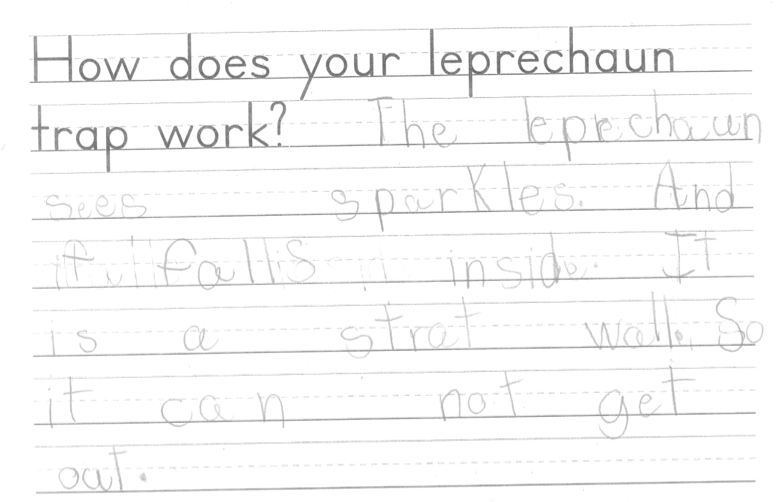 How does your leprechaun
trap work? The leprechaun
sees sparkles. And
it falls inside. It
is a strat wall. So
it can not get
out.